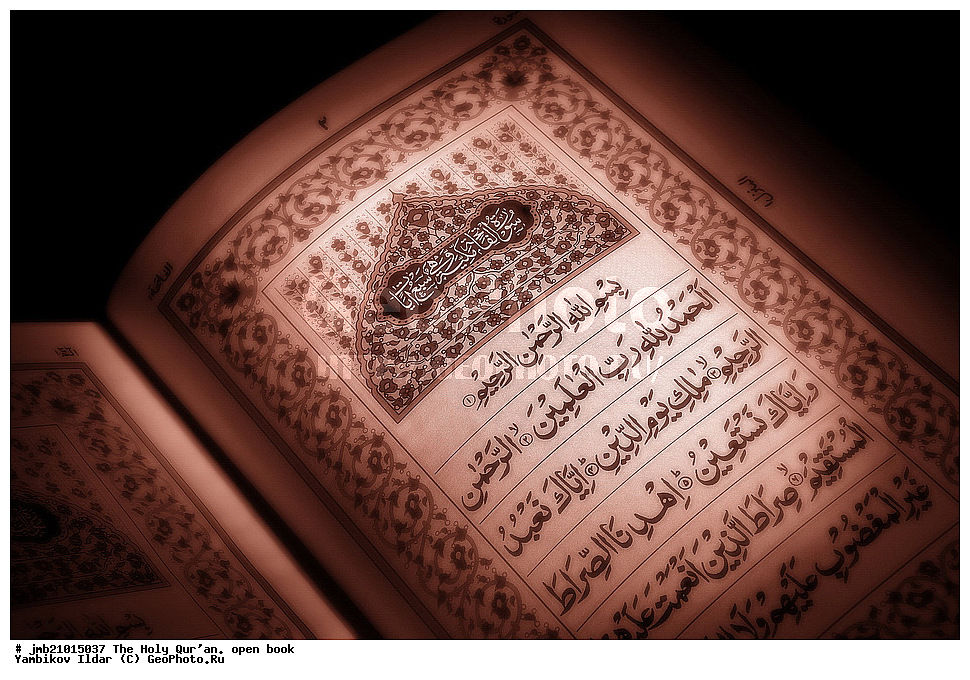 ٢
الم ١
سورة الفاتحة مكية وهي سبع آيات
بِسْمِ اللهِ الرَّحْمٰنِ الرَّحِيْمِ ۝١
اَلْحَمْدُ لِلّٰهِ رَبِّ الْعٰلَمِيْنَ ۝٢ الرَّحْمٰنِ
الرَّحِيْمِ ۝٣ مٰلِكِ يَوْمِ الدِّيْنِ ۝٤ اِيَّاكَ نَعْبُدُ
وَاِيَّاكَ نَسْتَعِيْنُ ۝٥ اِهْدِنَا الصِّرَاطَ
الْمُسْتَقِيْمَ ۝٦ صِرَاطَ الَّذِيْنَ اَنْعَمْتَ عَلَيْهِمْ
غَيْرِ الْمَغْضُوْبِ عَلَيْهِمْ وَلَا
# jmb21015037 The Holy Qur'an. open book
Yambikov Ildar (C) GeoPhoto.Ru